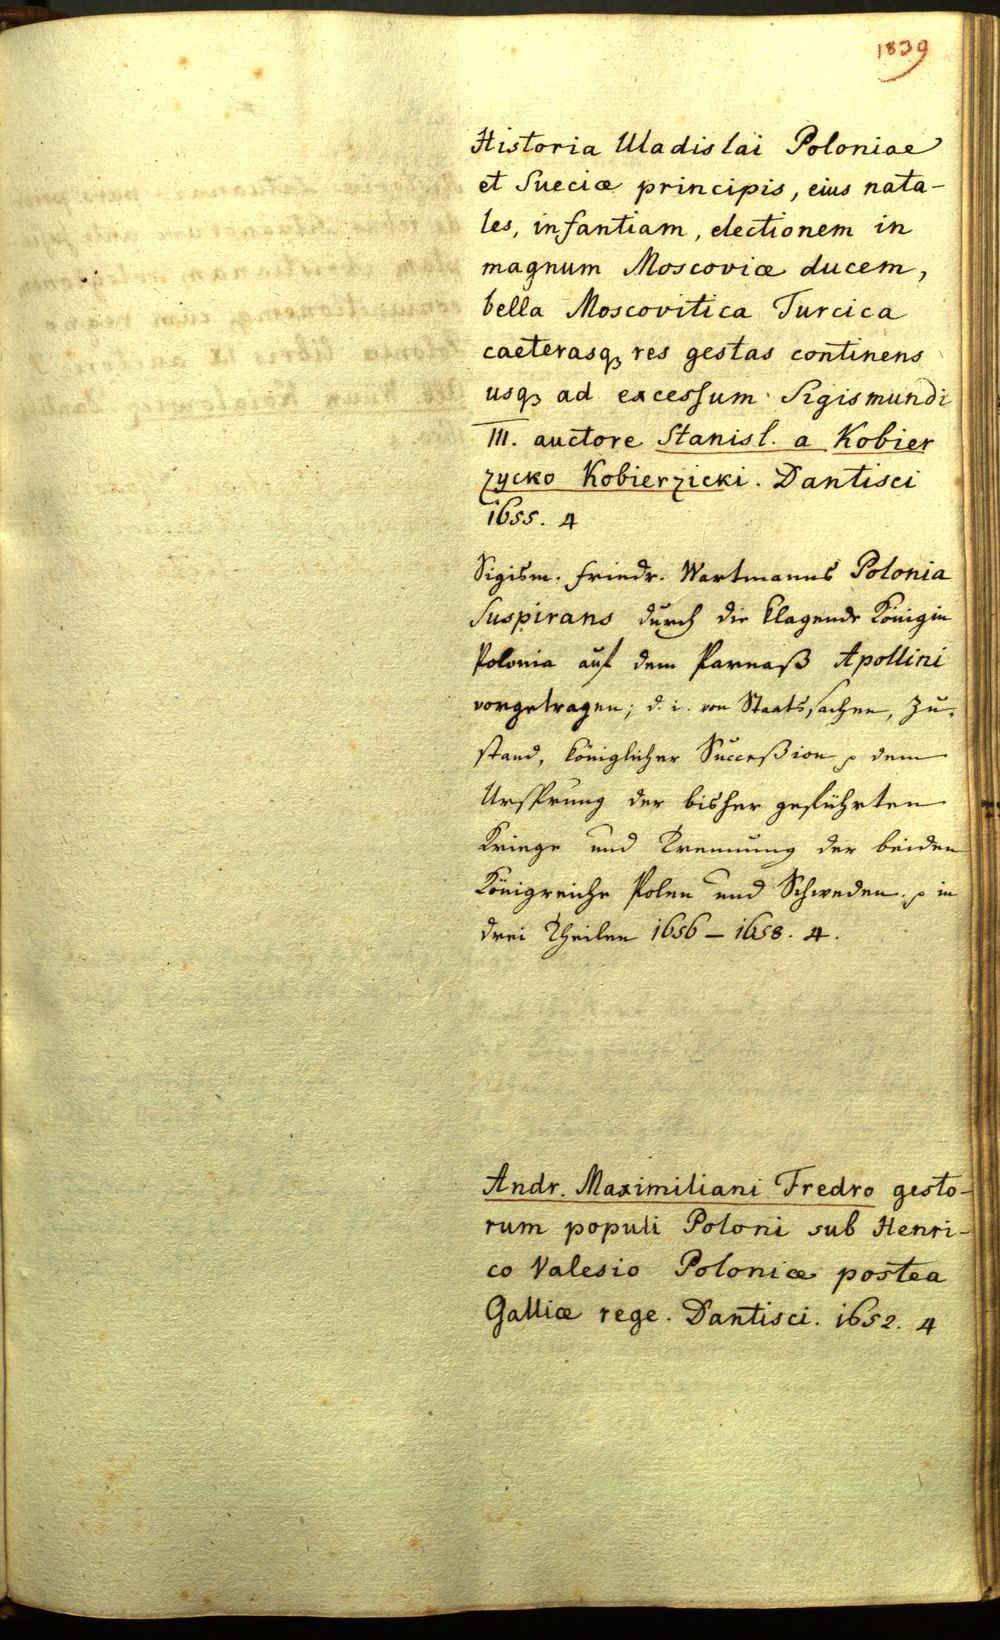 1839
Historia Uladislai Poloniae
et Sueciæ principis, eius nata-
les, infantiam, electionem in
magnum Moscoviæ ducem,
bella Moscovitica Turcica
caeterasq3 res gestas continens
usq3 ad excessum Sigismundi
III. auctore Stanisl. a Kobier
zycko Kobierzicki. Dantisci
1655. 4
Sigism. Friedr. Wartmanns Polonia
Suspirans durch die klagende Königin
Polonia auf dem Parnaß Apollini
vorgetragen; d. i. von Staatssachen, Zu-
stand, königlicher Succeßion p dem
Ursprung der bisher geführten
Kriege und Trennung der beiden
Königreiche Polen und Schweden p in
drei Theilen 1656 – 1658. 4.
Andr. Maximiliani Fredro gesto-
rum populi Poloni sub Henri-
co Valesio Poloniæ postea
Galliæ rege. Dantisci. 1652. 4